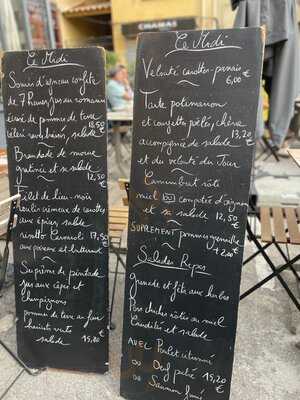 CHAMAS
Ce Midi
Souris d'agneau confite
de 7 heures, jus au romarin
écrasé de pommes de terre
céleri aux herbes, salade
13,50
Brandade de morue
gratinée et sa salade
12,50
Filet de lieu-noir
coulis crémeux de carottes
aux épices, salade
risotto Carnaroli 17,50
aux poireaux et butternut
Suprême de pintade
jus aux cèpes et
champignons
pommes de terre au four
haricots verts
salade 15,80
Ce Midi
Velouté carottes-panais
6,00 €
Tarte potimarron
et courgettes poêlées, chèvre
13,20
accompagnée de salade
et du velouté du Jour
Camembert rôti
miel et compotée d'oignons
et sa salade 12,50
SUPREMENT pommes grenaille
+ 2,00 €
Salades Repas
grenade et féta aux herbes
Pois chiches rôtis au miel
Crudités et salade
AVEC Poulet mariné
ou Oeuf poché 15,20
ou Saumon fumé €